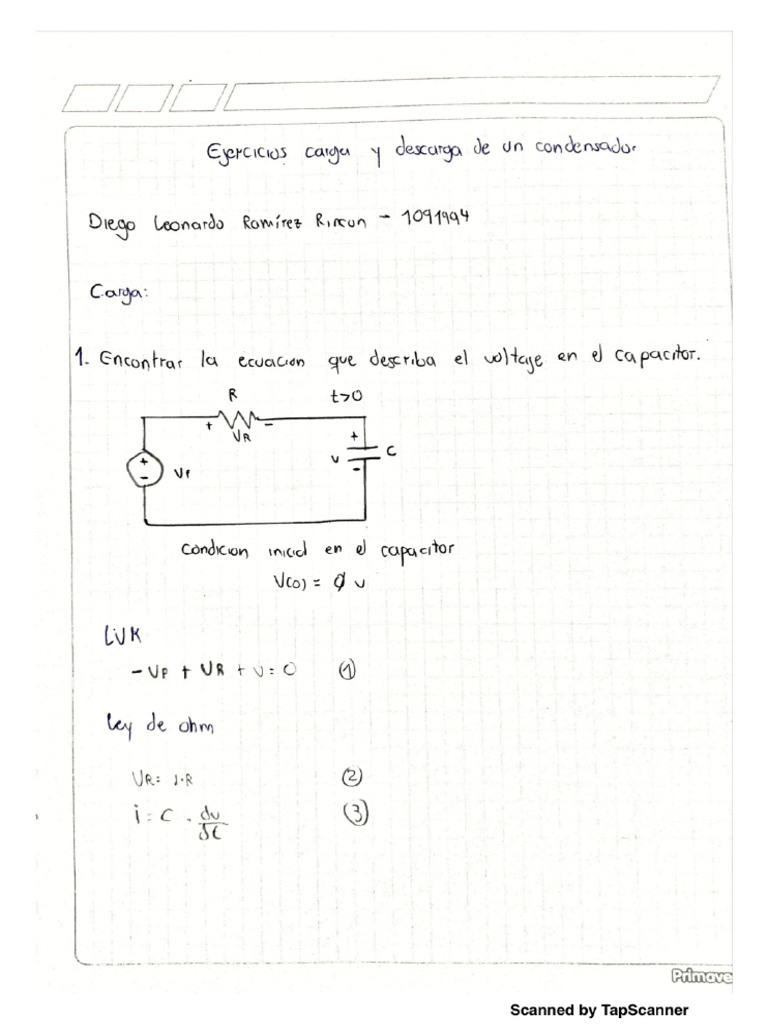 Ejercicios carga y descarga de un condensador
Diego Leonardo Ramírez Rincon - 1091994
Carga:
1. Encontrar la ecuacion que describa el voltaje en el capacitor.
R
t>0
+ VR -
+
-
VF
+
v
-
C
Condicion inicial en el capacitor
V(0) = 0 v
LVK
-VF + VR + v = 0 (1)
Ley de ohm
VR = i·R (2)
i = C . dv/dt (3)
Primave
Scanned by TapScanner